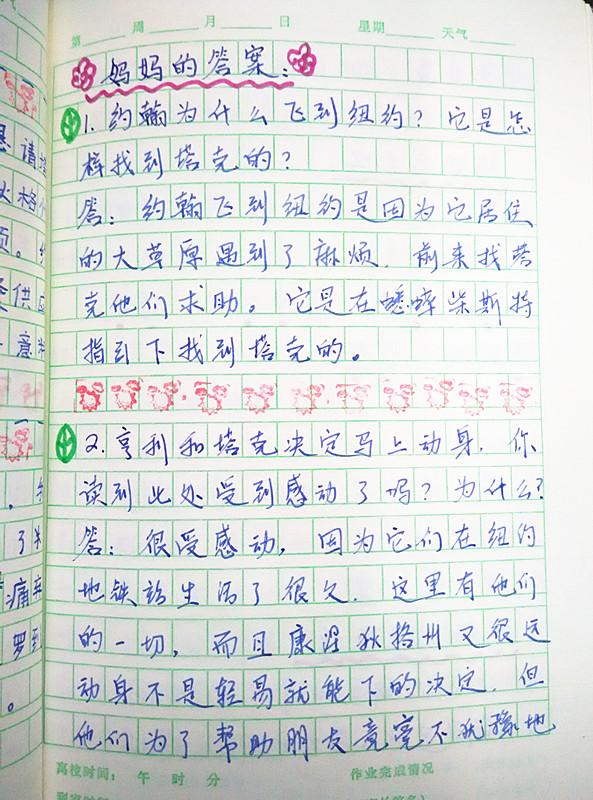 第 周 月 日 星期 天气
妈妈的答案:
1. 约翰为什么飞到纽约？它是怎
样找到塔克的？
答：约翰飞到纽约是因为它居住
的大草原遇到了麻烦，前来找塔
克他们求助。它是在蟋蟀柴斯特
指引下找到塔克的。
2. 亨利和塔克决定马上动身，你
读到此处受到感动了吗？为什么？
答：很受感动，因为它们在纽约
地铁站生活了很久，这里有他们
的一切，而且康涅狄格州又很远
动身不是轻易就能下的决定，但
他们为了帮助朋友竟毫不犹豫地
离校时间： 午 时 分 作业完成情况